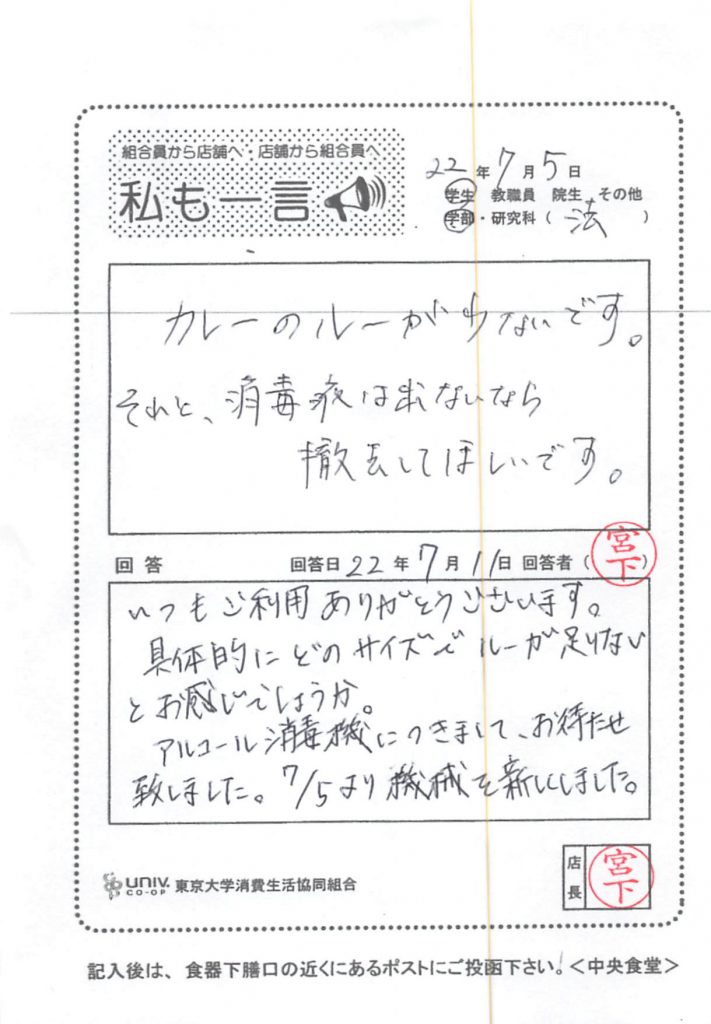 組合員から店舗へ・店舗から組合員へ
私も一言
22年7月5日
学生 教職員 院生 その他
学部・研究科（ 法 ）
カレーのルーが少ないです。
それと、消毒液は出ないなら
撤去してほしいです。
回答 回答日22年7月11日 回答者（宮下）
いつもご利用ありがとうございます。
具体的にどのサイズでルーが足りない
とお感じでしょうか。
アルコール消毒機につきまして、お待たせ
致しました。7/5より機械を新しくしました。
UNIV.
CO-OP
東京大学消費生活協同組合
店長
宮下
記入後は、食器下膳口の近くにあるポストにご投函下さい！＜中央食堂＞